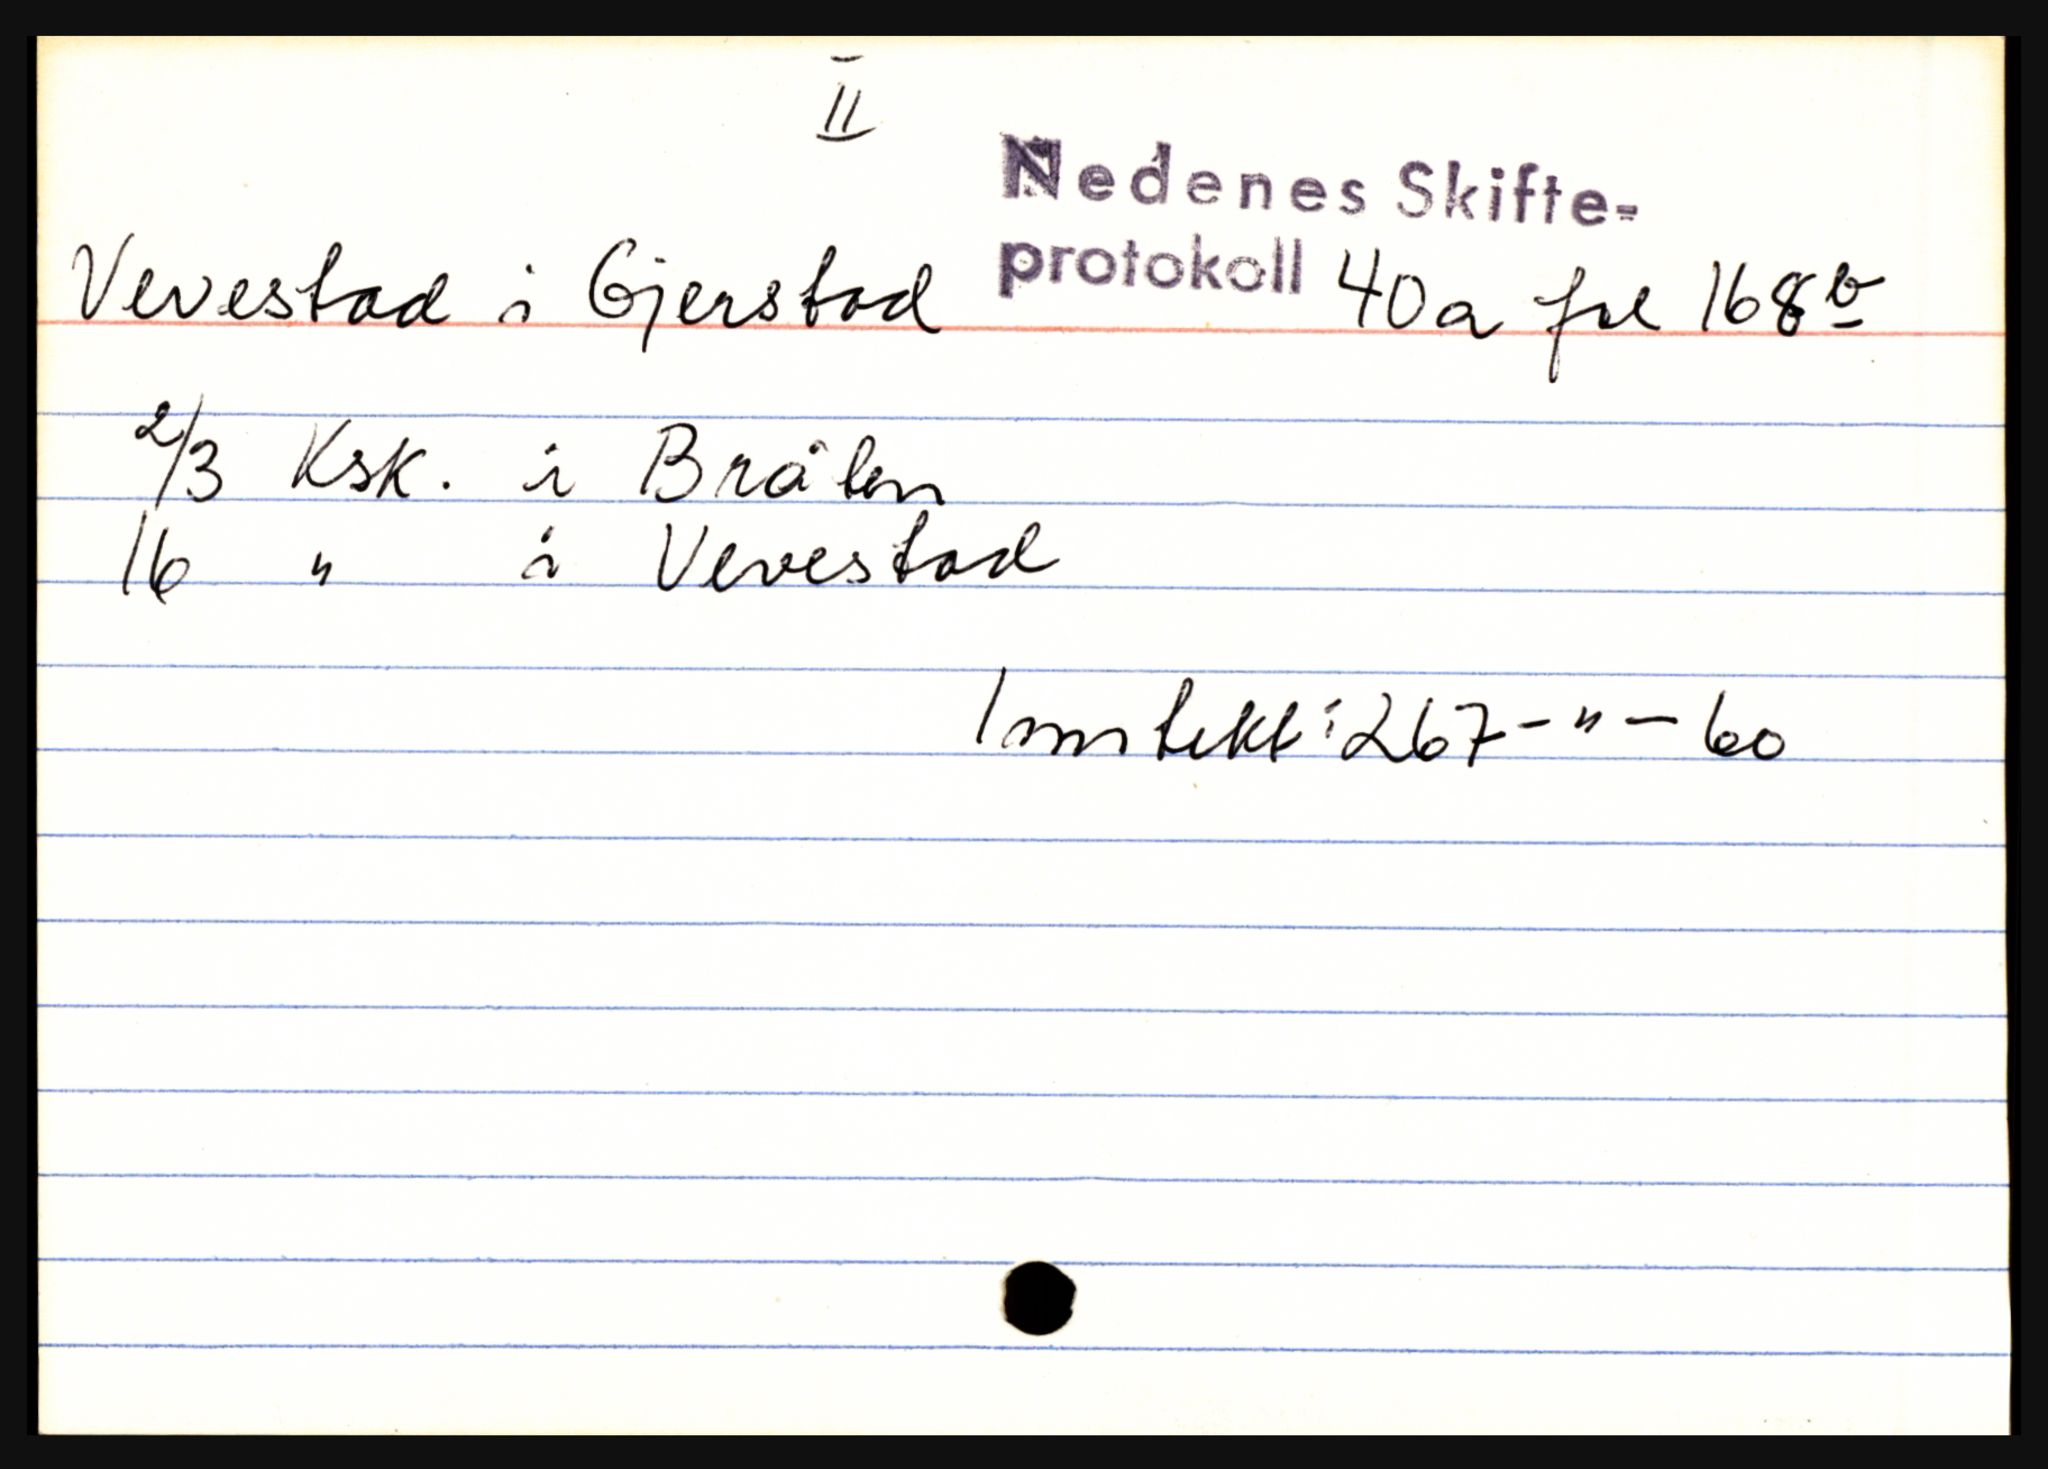 II
Nedenes Skifte-
protokoll 40a fol 168b
Vevestad i Gjerstad
2/3 Ksk. i Bråten
16 " i Vevestad
Inntekt: 267-"-60